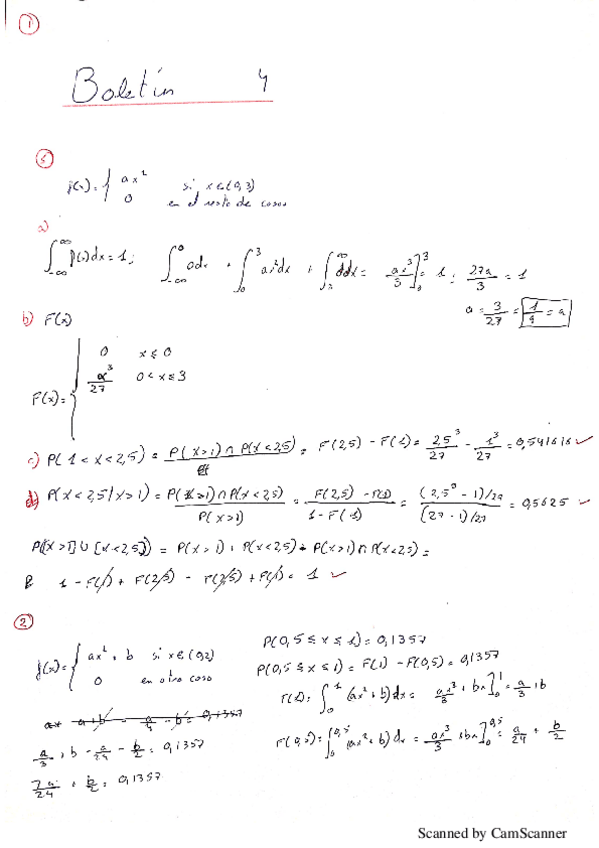 1
Boletín 4
5
f(x) = { ax² si x ∈ (0,3)
0 en el resto de casos
a)
∫_{-∞}^{∞} f(x)dx = 1; ∫_{-∞}^{0} 0dx + ∫_0^3 ax²dx + ∫_3^∞ 0dx = ax³/3 ]_0^3 = 1; 27a/3 = 1
a = 3/27 = 1/9 = a
b) F(x)
F(x) = { 0 x ≤ 0
x³/27 0 < x ≤ 3
c) P(1 < x < 2,5) = P(x>1) ∩ P(x<2,5) = F(2,5) - F(1) = 2,5³/27 - 1³/27 = 0,541616 ✓
d) P(x < 2,5 / x > 1) = P(x>1) ∩ P(x<2,5) / P(x>1) = F(2,5) - F(1) / 1 - F(1) = (2,5³ - 1)/27 / (27 - 1)/27 = 0,5625 ✓
P([x > 1] ∪ [x < 2,5]) = P(x > 1) + P(x < 2,5) - P(x > 1) ∩ P(x < 2,5) =
1 - F(1) + F(2,5) - F(2,5) + F(1) = 1 ✓
2
f(x) = { ax² + b si x ∈ (0,2)
0 en otro caso
P(0,5 ≤ x ≤ 1) = 0,1357
P(0,5 ≤ x ≤ 1) = F(1) - F(0,5) = 0,1357
F(1) = ∫_0^1 (ax² + b)dx = ax³/3 + bx ]_0^1 = a/3 + b
F(0,5) = ∫_0^{0,5} (ax² + b)dx = ax³/3 + bx ]_0^{0,5} = a/24 + b/2
a/3 + b - a/24 - b/2 = 0,1357
7a/24 + b/2 = 0,1357
Scanned by CamScanner